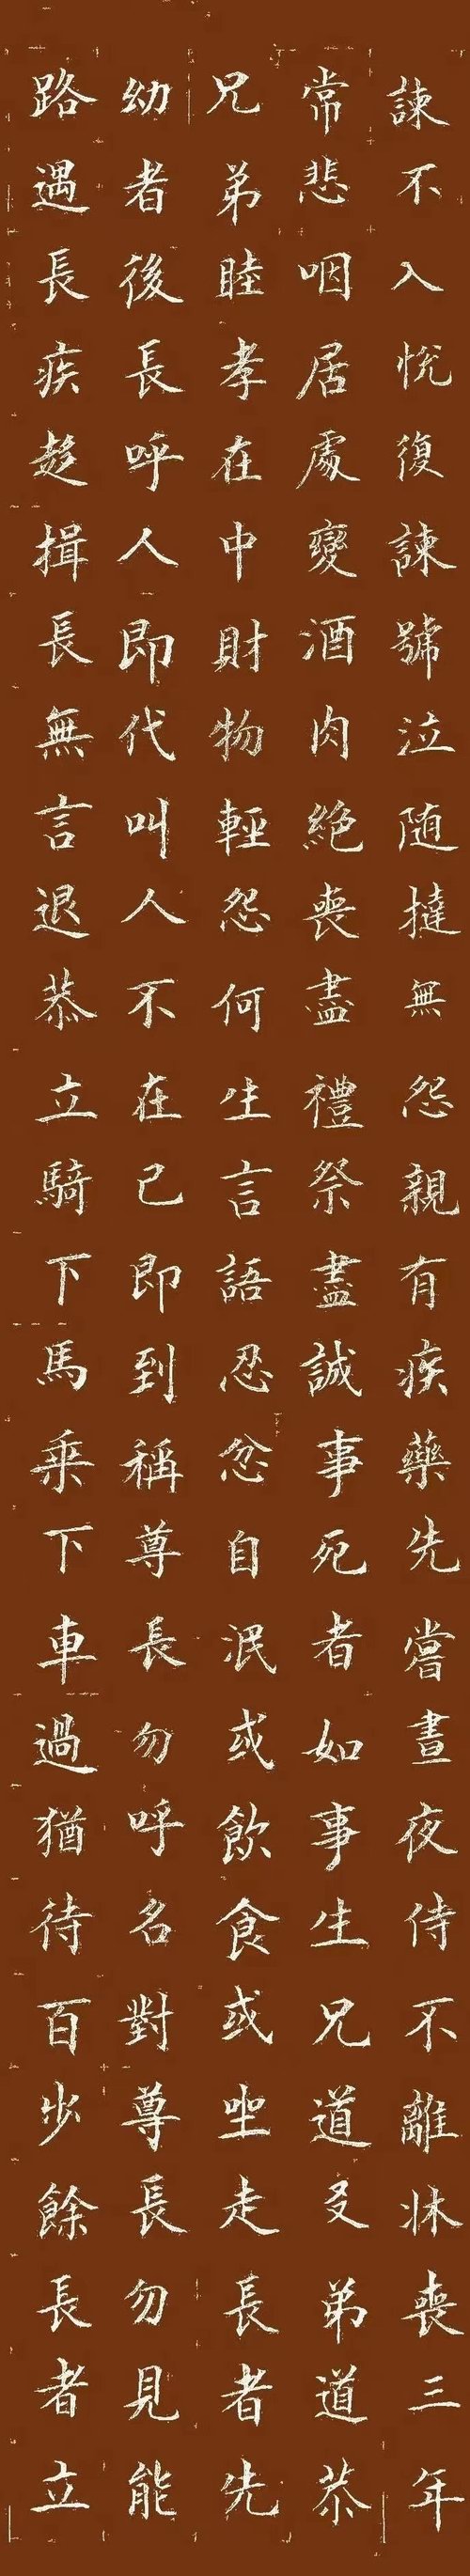 諫不入悅復諫號泣随撻無怨親有疾藥先嘗晝夜侍不離牀喪三年
常悲咽居處變酒肉絕喪盡禮祭盡誠事死者如事生兄道友弟道恭
兄弟睦孝在中財物輕怨何生言語忍忿自泯或飲食或坐走長者先
幼者後長呼人即代叫人不在己即到稱尊長勿呼名對尊長勿見能
路遇長疾趨揖長無言退恭立騎下馬乘下車過猶待百步餘長者立